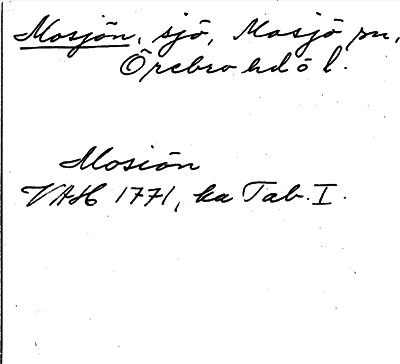 Mosjön, sjö, Mosjö sn,
Örebro hd ö l.
Mosiön
VAH 1771, ka Tab. I.